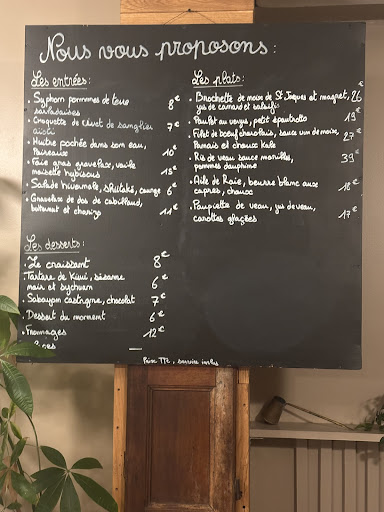 Nous vous proposons :
Les entrées :
. Syphon pommes de terre 8€
sarladaises
. Croquette de civet de sanglier 7€
aïoli
. Huître pochée dans son eau, 10€
Poireaux
. Foie gras gravelaxe, voile 15€
noisette hybiscus
. Salade kwamole, shiitaké, courge 6€
. Gravelaxe de dos de cabillaud, 11€
butternut et chorizo
Les desserts :
. Le croissant 8€
. Tartare de Kiwi, sésame 6€
noir et sychuan
. Sabayon castagne, chocolat 7€
. Dessert du moment 6€
. Fromages 12€
Les plats :
. Brochette de noix de St Jaques et magret, 26€
jus de canard et salsifi
. Poulpe au voyus, petit épeautre 19€
. Filet de boeuf charolais, sauce vin de noix, 27€
Panais et choux Kale
. Ris de veau sauce morilles, 39€
pommes dauphine
. Aile de Raie, beurre blanc aux 18€
capres, choux
. Paupiette de veau, jus de veau, 17€
carottes glaçées
Prix TTC, service inclus